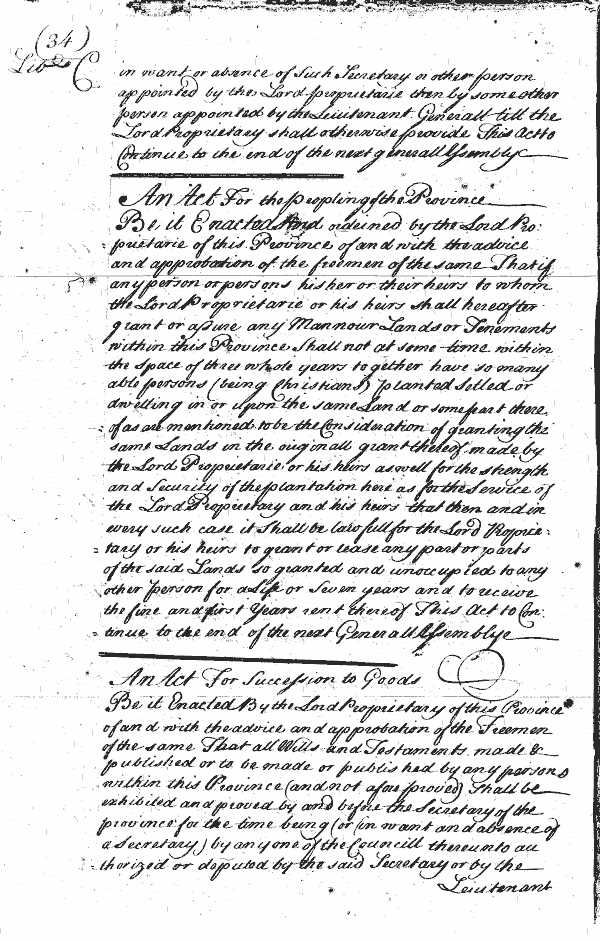 (34)
Liber C
in want or absence of Such Secretary or other person
appointed by the Lord proprietarie then by some other
person appointed by the Lieutenant Generall till the
Lord Proprietary shall otherwise provide This Act to
Continue to the end of the next generall Assembly
An Act For the peopling of the Province
Be it Enacted And ordeined by the Lord Pro:
prietarie of this Province of and with the advice
and approbation of the freemen of the same That if
any person or persons his her or their heirs to whom
the Lord Proprietarie or his heirs shall hereafter
grant or assure any Mannour Lands or Tenements
within this Province Shall not at some time within
the space of three whole years together have so many
able persons (being Christians) planted setled or
dwelling in or upon the same Land or some part there
of as are mentioned to be the Consideration of granting the
same Lands in the originall grant thereof made by
the Lord Proprietarie or his heirs as well for the strength
and Security of the plantation here as for the Service of
the Lord Proprietary and his heirs that then and in
every such case it Shall be lawfull for the Lord Proprie=
=tary or his heirs to grant or lease any part or parts
of the said Lands so granted and unoccupied to any
other person for a Life or Seven years and to receive
the fine and first Years rent thereof This Act to Con:
=tinue to the end of the next Generall Assemblye
An Act For Succession to Goods
Be it Enacted By the Lord Proprietary of this Province
of and with the advice and approbation of the Freemen
of the same That all Wills and Testaments made &
published or to be made or published by any persons
within this Province (and not afore proved) Shall be
exhibited and proved by and before the Secretary of the
province for the time being (or (in want and absence of
a Secretary) by any one of the Councill thereunto au
thorized or deputed by the said Secretary or by the
Lieutenant